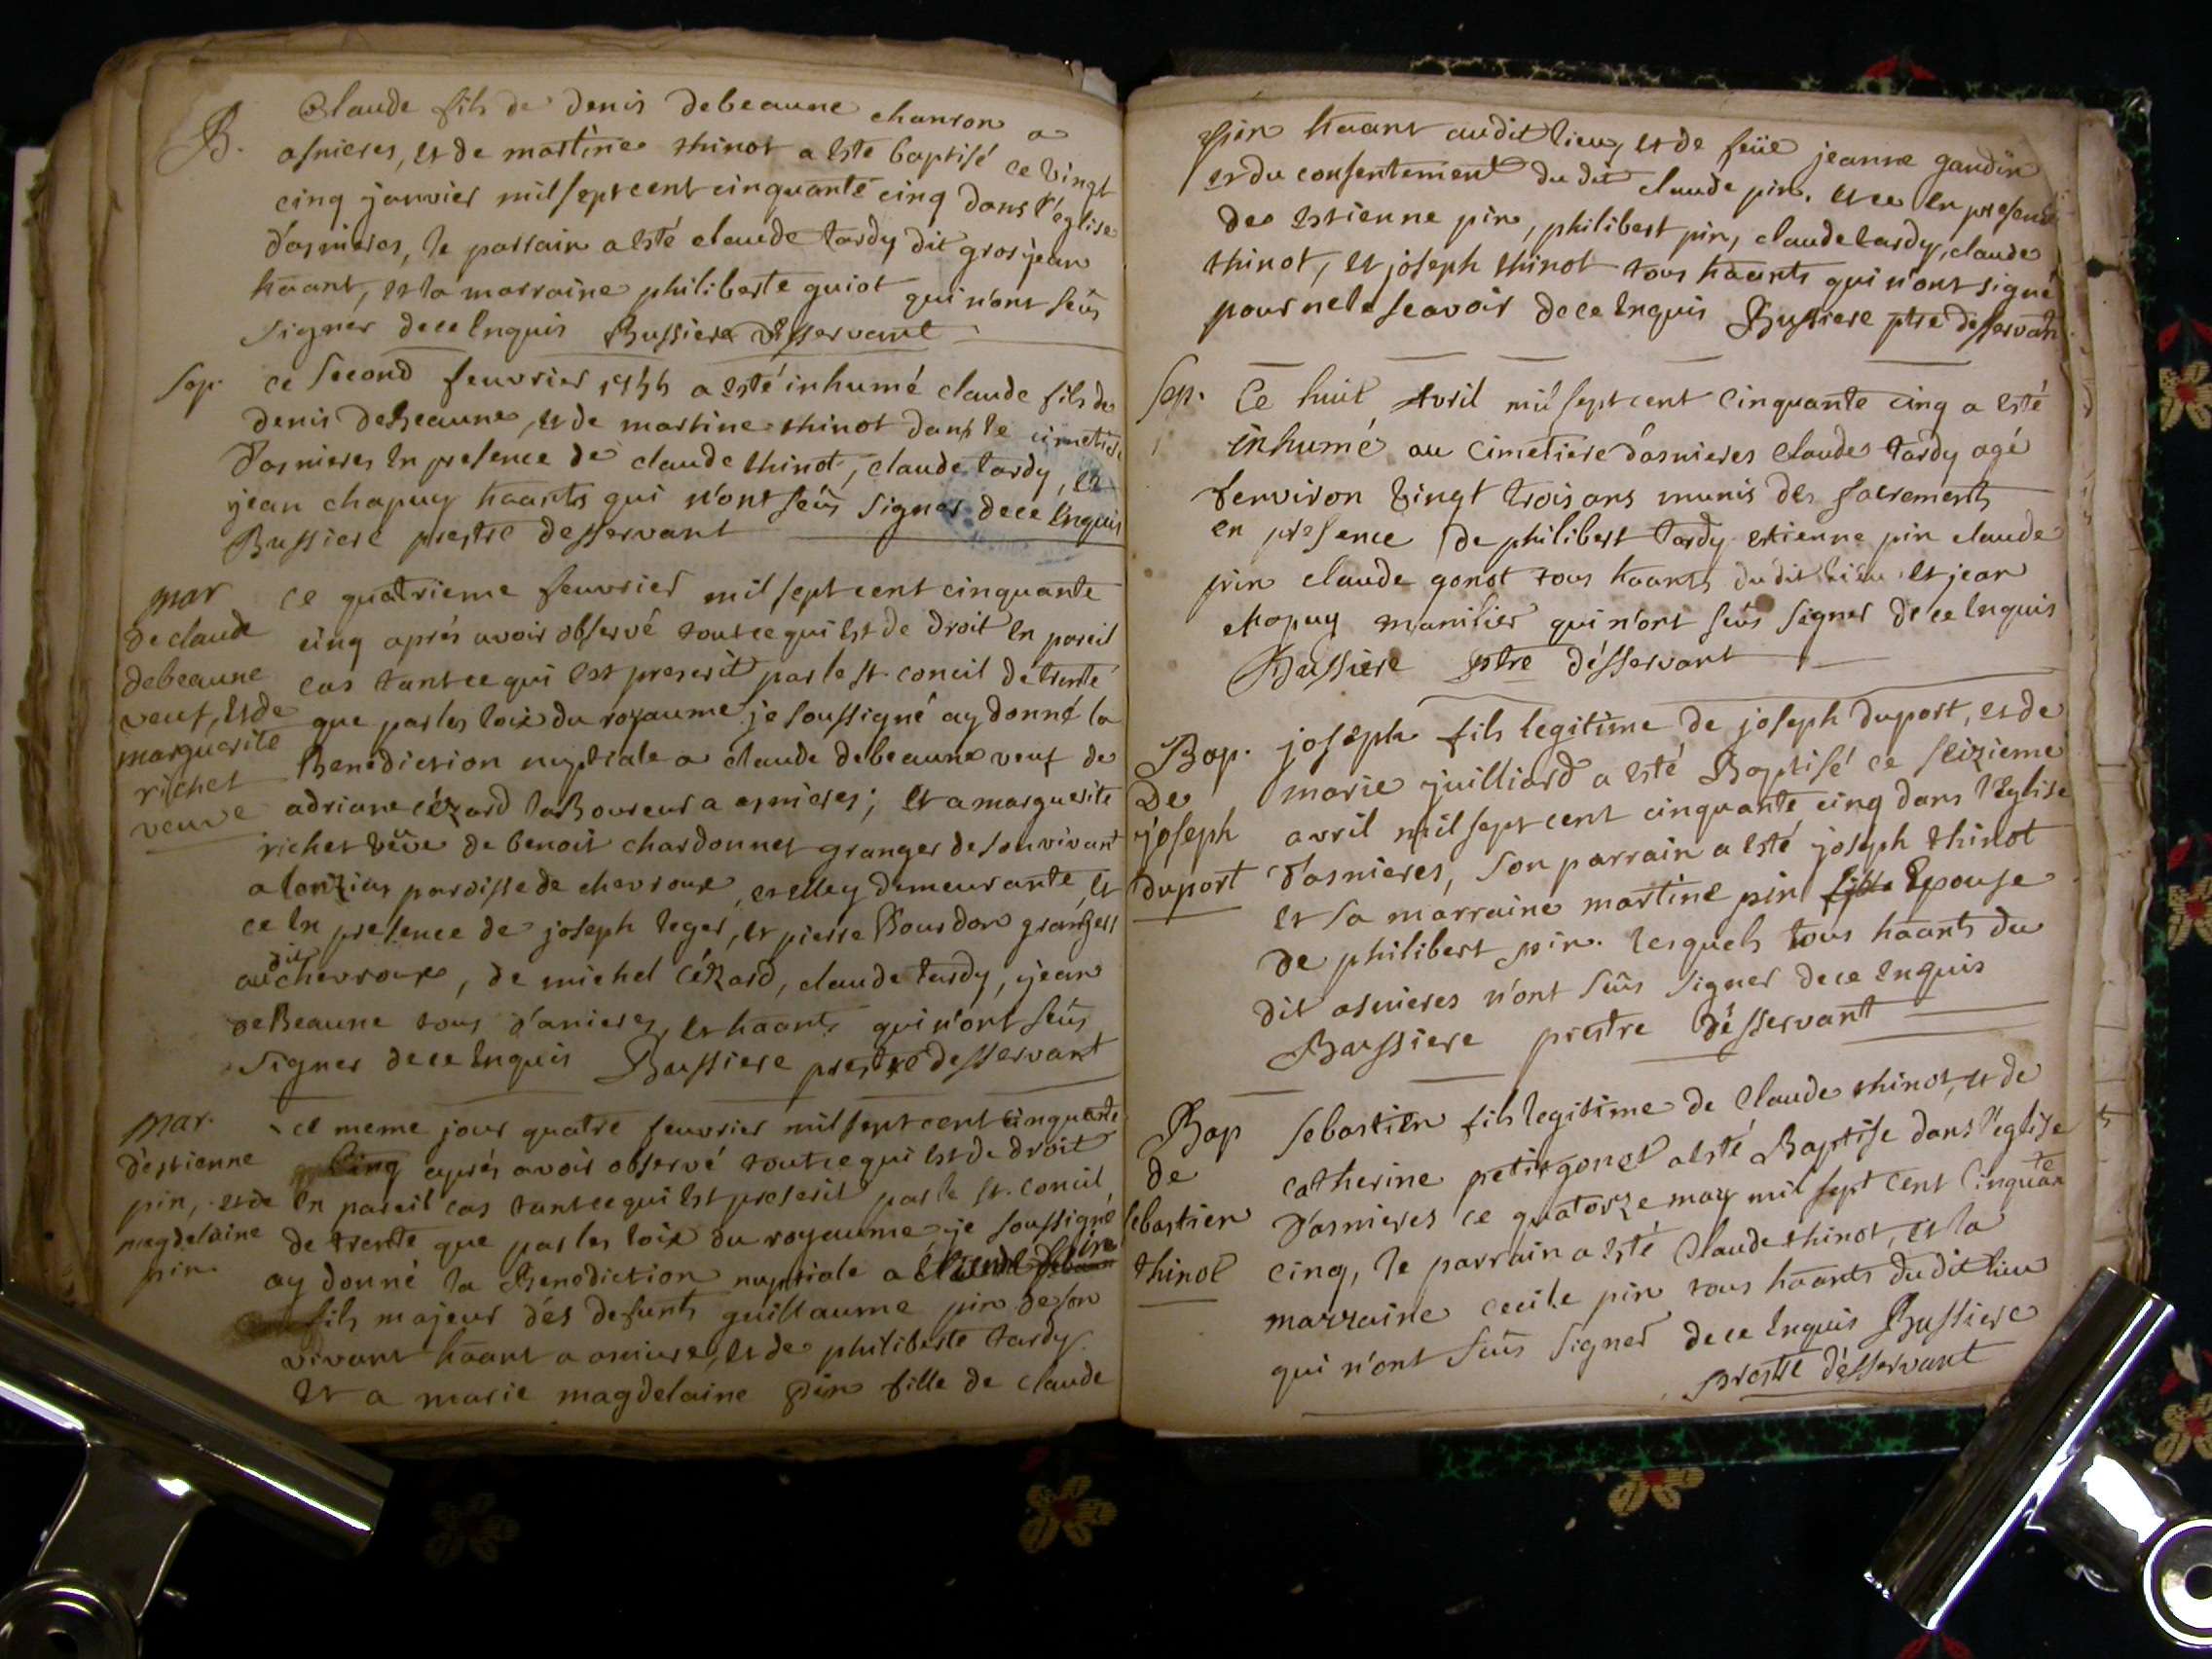 B.
Claude fils de denis debeaune chanron a
asnieres, et de martine thinot a esté baptisé ce vingt
cinq janvier mil sept cent cinquante cinq dans l'église
d'asnieres, le parrain a esté claude tardy dit gros jean
haant, et la marraine philiberte guiot qui n'ont seûs
signer de ce enquis Bussiere desservant
Sep.
ce second feuvrier 1755 a esté inhumé claude fils de
denis deBeaune, et de martine thinot dans le cimetiere
d'asnieres en presence de claude thinot, claude tardy, et
jean chapuy haants qui n'ont seûs signer de ce enquis
Bussiere prestre desservant
mar
de claude
debeaune
veuf, et de
marguerite
richet
veuve
ce quatrieme feuvrier mil sept cent cinquante
cinq aprés avoir observé tout ce qui est de droit en pareil
cas tant ce qui est prescrit par le st. concil de trente
que par les loix du royaume je soussigné ay donné la
Benediction nuptiale a claude debeaune veuf de
adriane cézard laBoureur a asnieres; et a marguerite
richet veüe de benoit chardonnet granger de son vivant
a paroisse de chevroux, et elley demeurante, et
ce en presence de joseph leger, et pierre Bourdon grangers
audit chevroux, de michel cézard, claude tardy, jean
deBeaune tous d'anieres, et haants qui n'ont seûs
signer de ce enquis Bussiere prestre desservant
mar.
d'estienne
pin, et de
magdelaine
pin
ce meme jour quatre feuvrier mil sept cent cinquante
cinq aprés avoir observé tout ce qui est de droit
en pareil cas tant ce qui est prescrit par le st. concil
de trente que par les loix du royaume je soussigné
ay donné la Benediction nuptiale a Etienne pin
fils majeur dés defunts guillaume pin de son
vivant haant a asniere, et de philiberte tardy.
Et a marie magdelaine pin fille de claude
pin haant audit lieu, et de feüe jeanne gaudin
et du consentement du dit claude pin. et ce en presence
de estienne pin, philibert pin, claude tardy, claude
thinot, et joseph thinot tous haants qui n'ont signé
pour ne le scavoir de ce enquis Bussiere ptre desservant
Sep.
Ce huit Avril mil sept cent Cinquante cinq a esté
inhumé au Cimetiere d'asnieres Claude tardy agé
denviron vingt trois ans munis des sacrements
en presence de philibert tardy estienne pin claude
pin claude gonot tous haants du dit lieu et jean
chapuy manilier qui n'ont seûs signer de ce enquis
Bussiere ptre désservant
Bap.
De
joseph
duport
joseph fils legitime de joseph duport, et de
marie juilliard a esté Baptisé ce seizieme
avril mil sept cent cinquante cinq dans l'Eglise
d'asnieres, son parrain a esté joseph thinot
et sa marraine martine pin Epouse
de philibert pin. lesquels tous haants du
dit asnieres n'ont seûs signer de ce enquis
Bussiere prestre désservant
Bap
de
sebastien
thinot
sebastien fils legitime de Claude thinot, et de
catherine petitgonet a esté Baptise dans l'eglise
d'asnieres ce quatorze may mil sept cent Cinquante
cinq, le parrain a esté Claude thinot, et la
marraine cecile pin tous haants dudit lieu
qui n'ont seûs signer de ce enquis Bussiere
prestre désservant